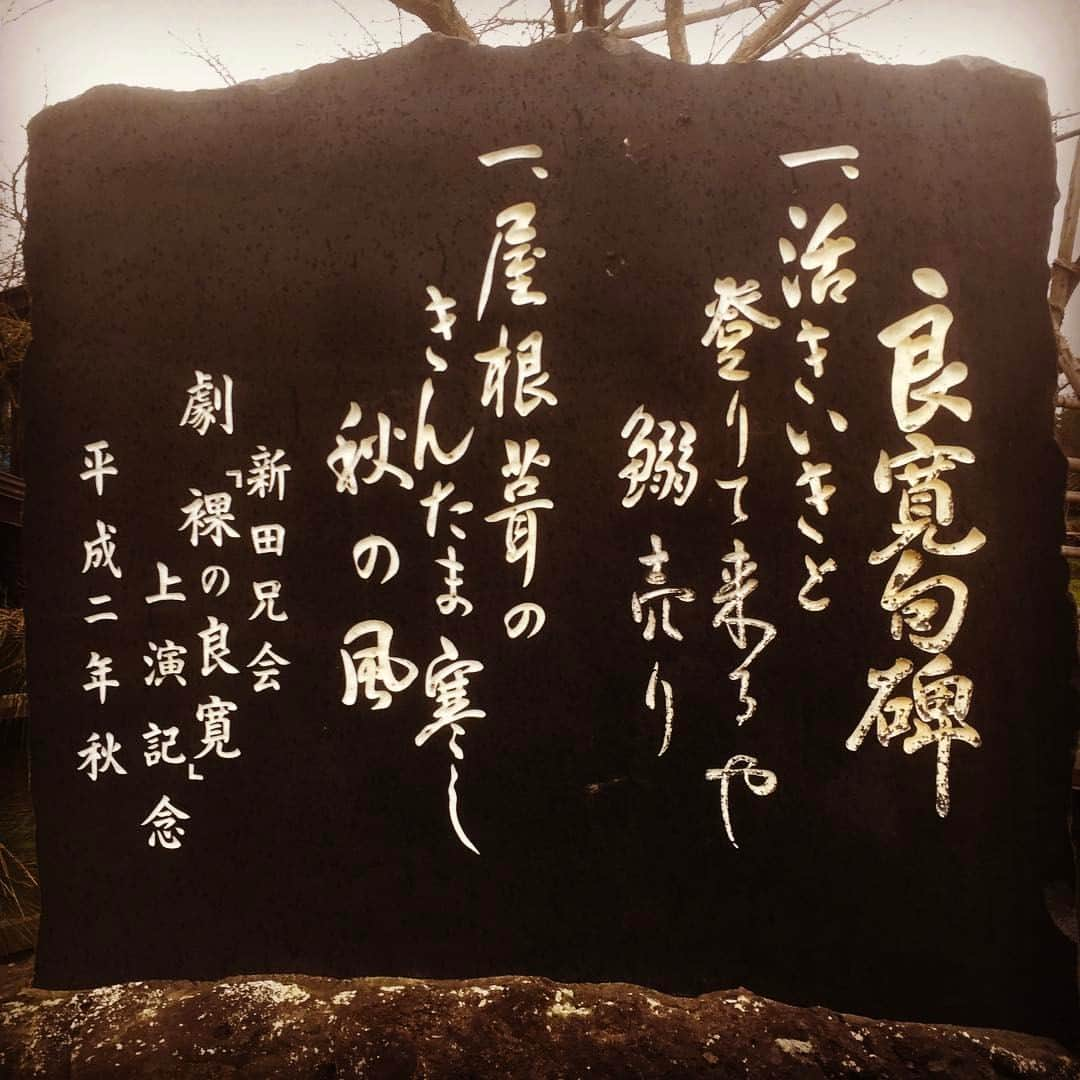 良寛句碑
一、活きいきと
登りて来るや
鰯売り
一、屋根葺の
きんたま寒し
秋の風
新田兄会
劇「裸の良寛」
上演記念
平成二年秋